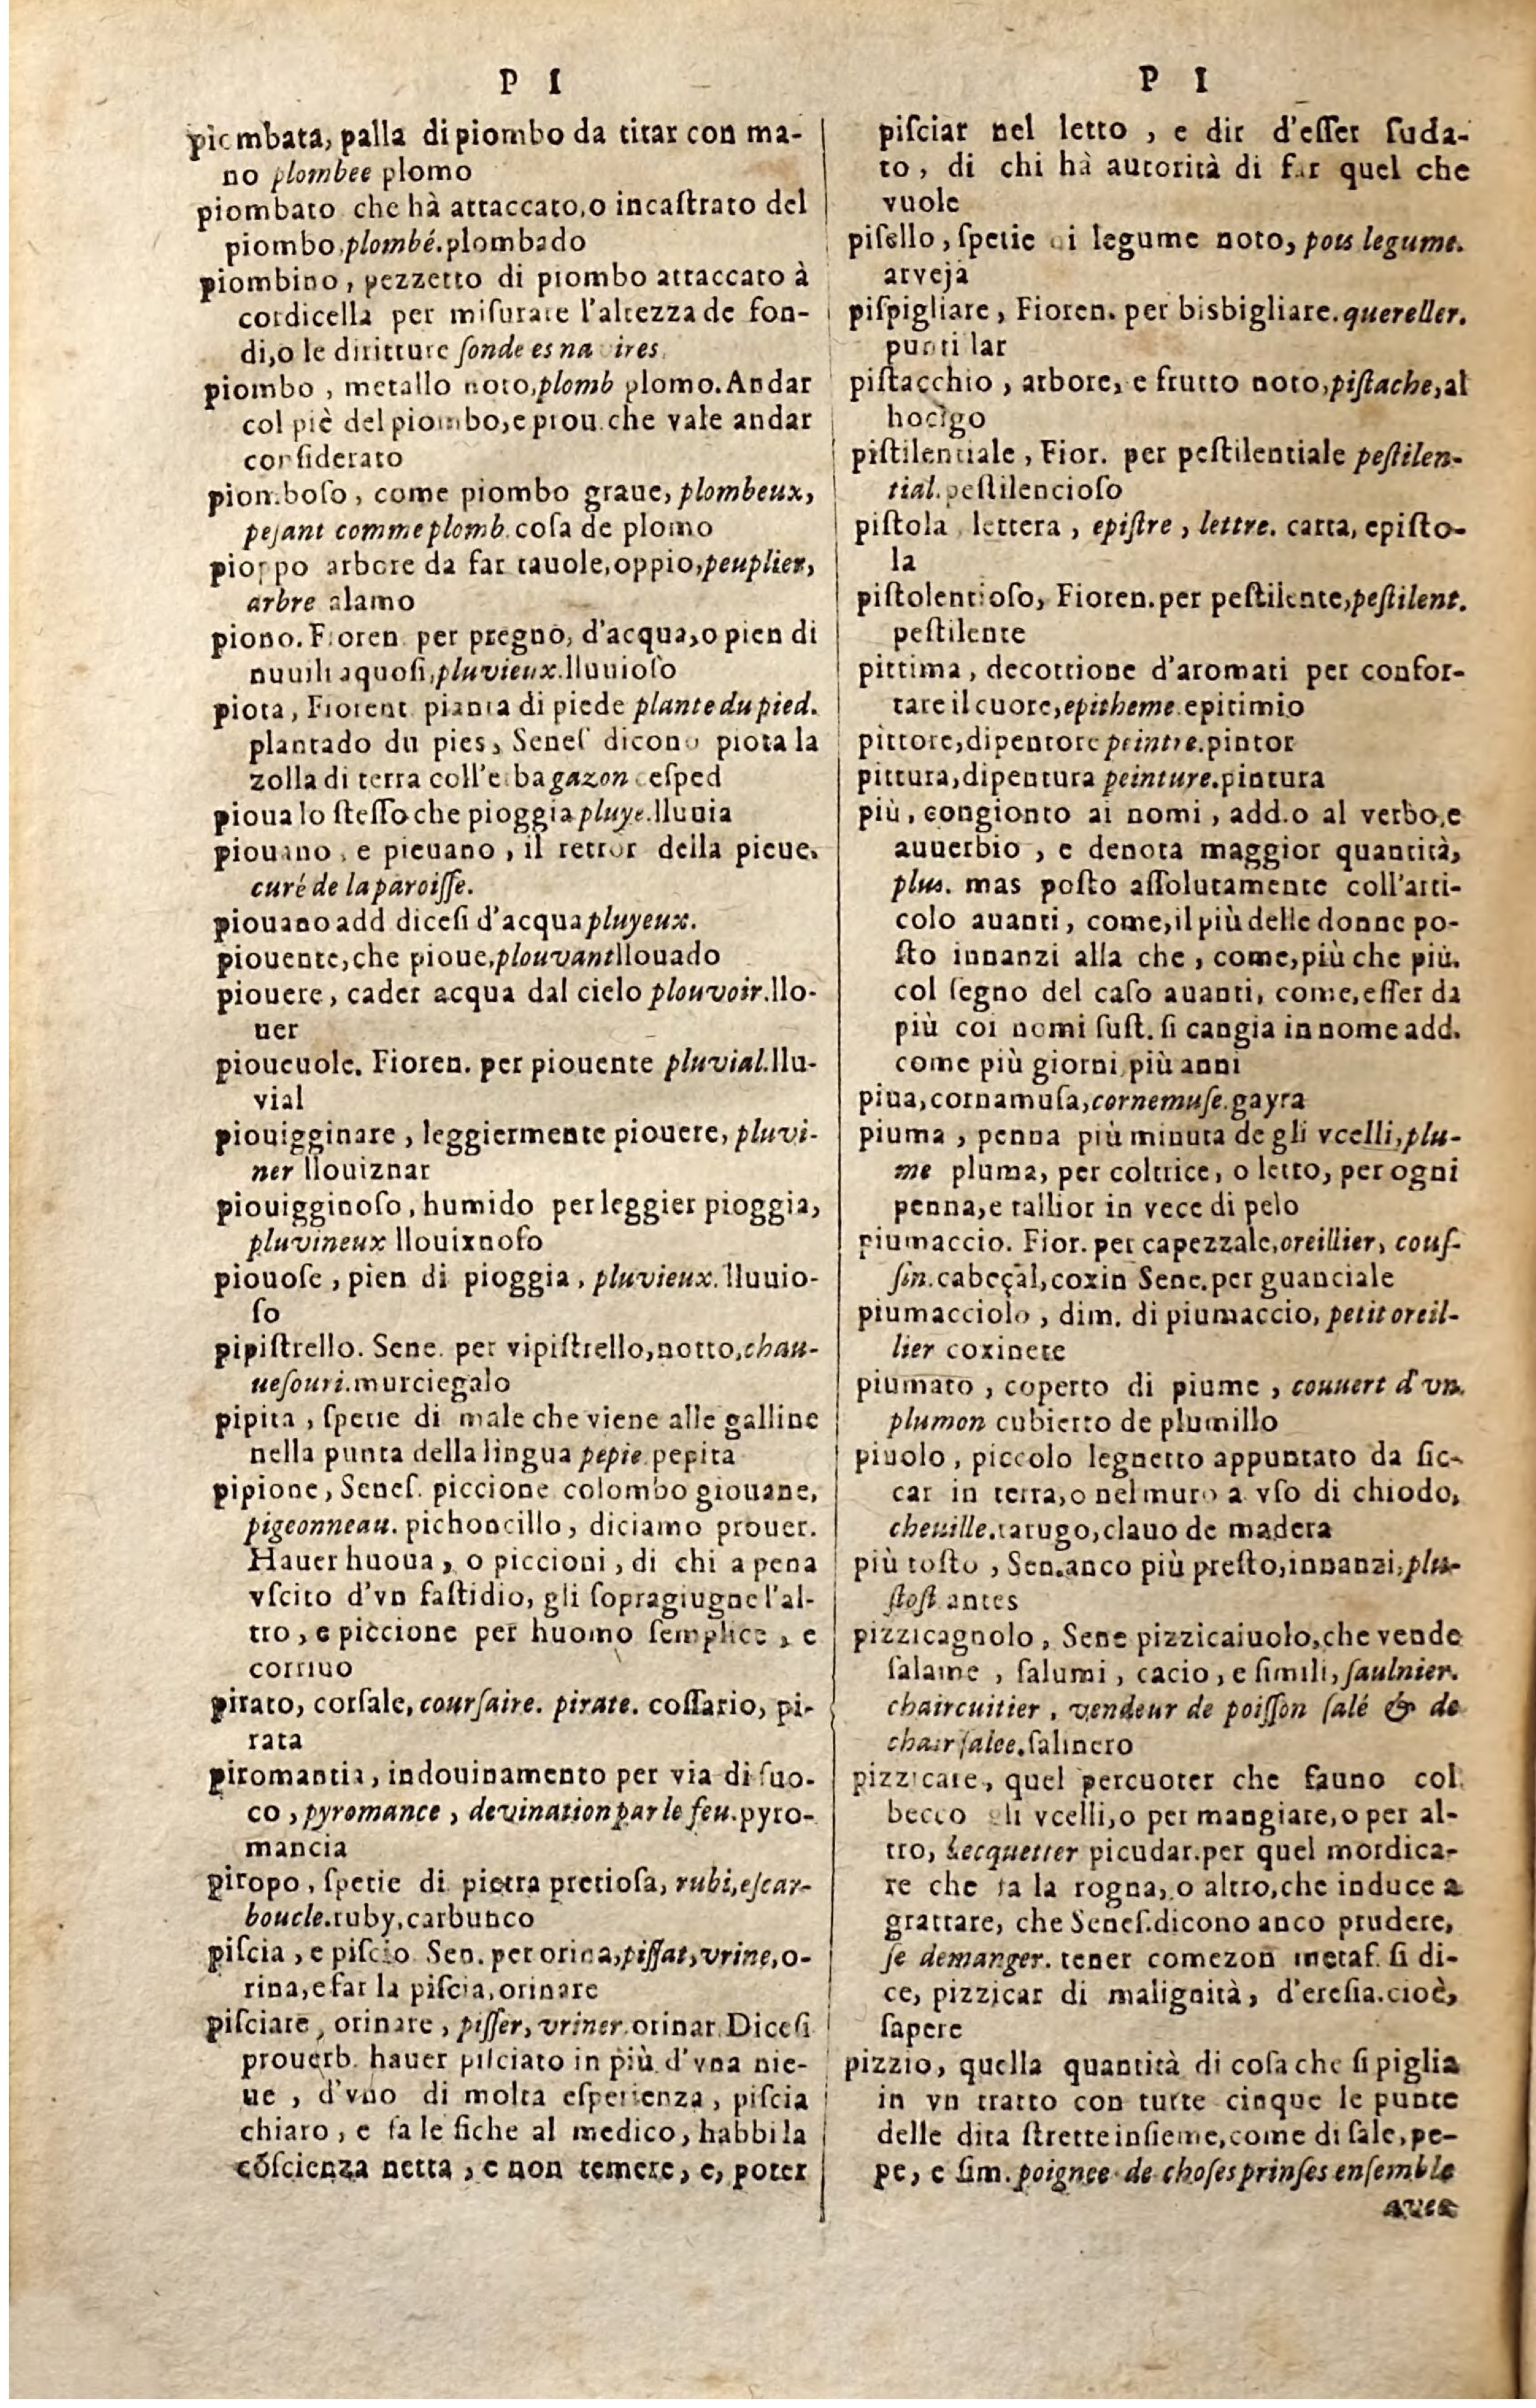 P I
piombata, palla di piombo da tirar con ma-
no plombee plomo
piombato che hà attaccato, o incaſtrato del
piombo, plombé. plombado
piombino, pezzetto di piombo attaccato à
cordicella per miſurare l'altezza de fon-
di, o le diritture ſonde es navires
piombo, metallo noto, plomb plomo. Andar
col piè del piombo, e prou. che vale andar
conſiderato
piomboſo, come piombo graue, plombeux,
peſant comme plomb. coſa de plomo
pioppo arbore da far tauole, oppio, peuplier,
arbre alamo
piono. Fioren per pregno, d'acqua, o pien di
nuuili aquoſi, pluvieux. lluuioſo
piota, Fiorent pianta di piede plante du pied.
plantado du pies, Seneſ dicono piota la
zolla di terra coll'erba gazon ceſped
pioua lo ſteſſo che pioggia pluye. lluuia
piouano, e pieuano, il rettor della pieue.
curé de la paroiſſe.
piouano add diceſi d'acqua pluyeux.
piouente, che pioue, plouvant llouado
piouere, cader acqua dal cielo plouvoir. llo-
uer
pioueuole. Fioren. per piouente pluvial. llu-
vial
piouigginare, leggiermente piouere, pluvi-
ner llouiznar
piouigginoſo, humido per leggier pioggia,
pluvineux llouixnoſo
piouoſe, pien di pioggia, pluvieux. lluuio-
ſo
pipiſtrello. Sene. per vipiſtrello, notto, chau-
ueſouri. murciegalo
pipita, ſpetie di male che viene alle galline
nella punta della lingua pepie. pepita
pipione, Seneſ. piccione colombo giouane,
pigeonneau. pichoncillo, diciamo prouer.
Hauer huoua, o piccioni, di chi a pena
vſcito d'vn faſtidio, gli ſopragiugne l'al-
tro, e piccione per huomo ſemplice, e
corriuo
pirato, corſale, courſaire. pirate. coſſario, pi-
rata
piromantia, indouinamento per via di fuo-
co, pyromance, devination par le feu. pyro-
mancia
piropo, ſpetie di pietra pretioſa, rubi, eſcar-
boucle. ruby, carbunco
piſcia, e piſcio Sen. per orina, piſſat, vrine, o-
rina, e far la piſcia, orinare
piſciare, orinare, piſſer, vriner. orinar. Diceſi
prouerb. hauer piſciato in più d'vna nie-
ue, d'vno di molta eſperienza, piſcia
chiaro, e fa le fiche al medico, habbi la
cõſcienza netta, e non temere, e, poter
P I
piſciar nel letto, e dir d'eſſer ſuda-
to, di chi hà autorità di far quel che
vuole
piſello, ſpetie di legume noto, pois legume.
arveja
piſpigliare, Fioren. per bisbigliare. quereller.
punti lar
piſtacchio, arbore, e frutto noto, piſtache, al
hocigo
piſtilentiale, Fior. per peſtilentiale peſtilen-
tial. peſtilencioſo
piſtola, lettera, epiſtre, lettre. carta, epiſto-
la
piſtolentioſo, Fioren. per peſtilente, peſtilent.
peſtilente
pittima, decottione d'aromati per confor-
tare il cuore, epitheme. epitimio
pittore, dipentore peintre. pintor
pittura, dipentura peinture. pintura
più, congionto ai nomi, add. o al verbo, e
auuerbio, e denota maggior quantità,
plus. mas poſto aſſolutamente coll'arti-
colo auanti, come, il più delle donne po-
ſto innanzi alla che, come, più che più.
col ſegno del caſo auanti, come, eſſer da
più coi nomi ſuſt. ſi cangia in nome add.
come più giorni, più anni
piua, cornamuſa, cornemuſe. gayra
piuma, penna più minuta de gli vcelli, plu-
me pluma, per coltrice, o letto, per ogni
penna, e tallior in vece di pelo
piumaccio. Fior. per capezzale, oreillier, couſ-
ſin. cabeçal, coxin Sene. per guanciale
piumacciolo, dim. di piumaccio, petit oreil-
lier coxinete
piumato, coperto di piume, couuert d'vn
plumon cubierto de plumillo
piuolo, piccolo legnetto appuntato da fic-
car in terra, o nel muro a vſo di chiodo,
cheuille. tarugo, clauo de madera
più toſto, Sen. anco più preſto, innanzi, plu-
ſtoſt antes
pizzicagnolo, Sene pizzicaiuolo, che vende
ſalame, ſalumi, cacio, e ſimili, ſaulnier.
chaircuitier, vendeur de poiſſon ſalé & de
chair ſalee. ſalinero
pizzicare, quel percuoter che fauno col
becco gli vcelli, o per mangiare, o per al-
tro, becquetter picudar. per quel mordica-
re che fa la rogna, o altro, che induce a
grattare, che Seneſ. dicono anco prudere,
ſe demanger. tener comezon metaf. ſi di-
ce, pizzicar di malignità, d'ereſia. cioè,
ſapere
pizzio, quella quantità di coſa che ſi piglia
in vn tratto con tutte cinque le punte
delle dita ſtrette inſieme, come di ſale, pe-
pe, e ſim. poignee de choſes prinſes enſemble
avec